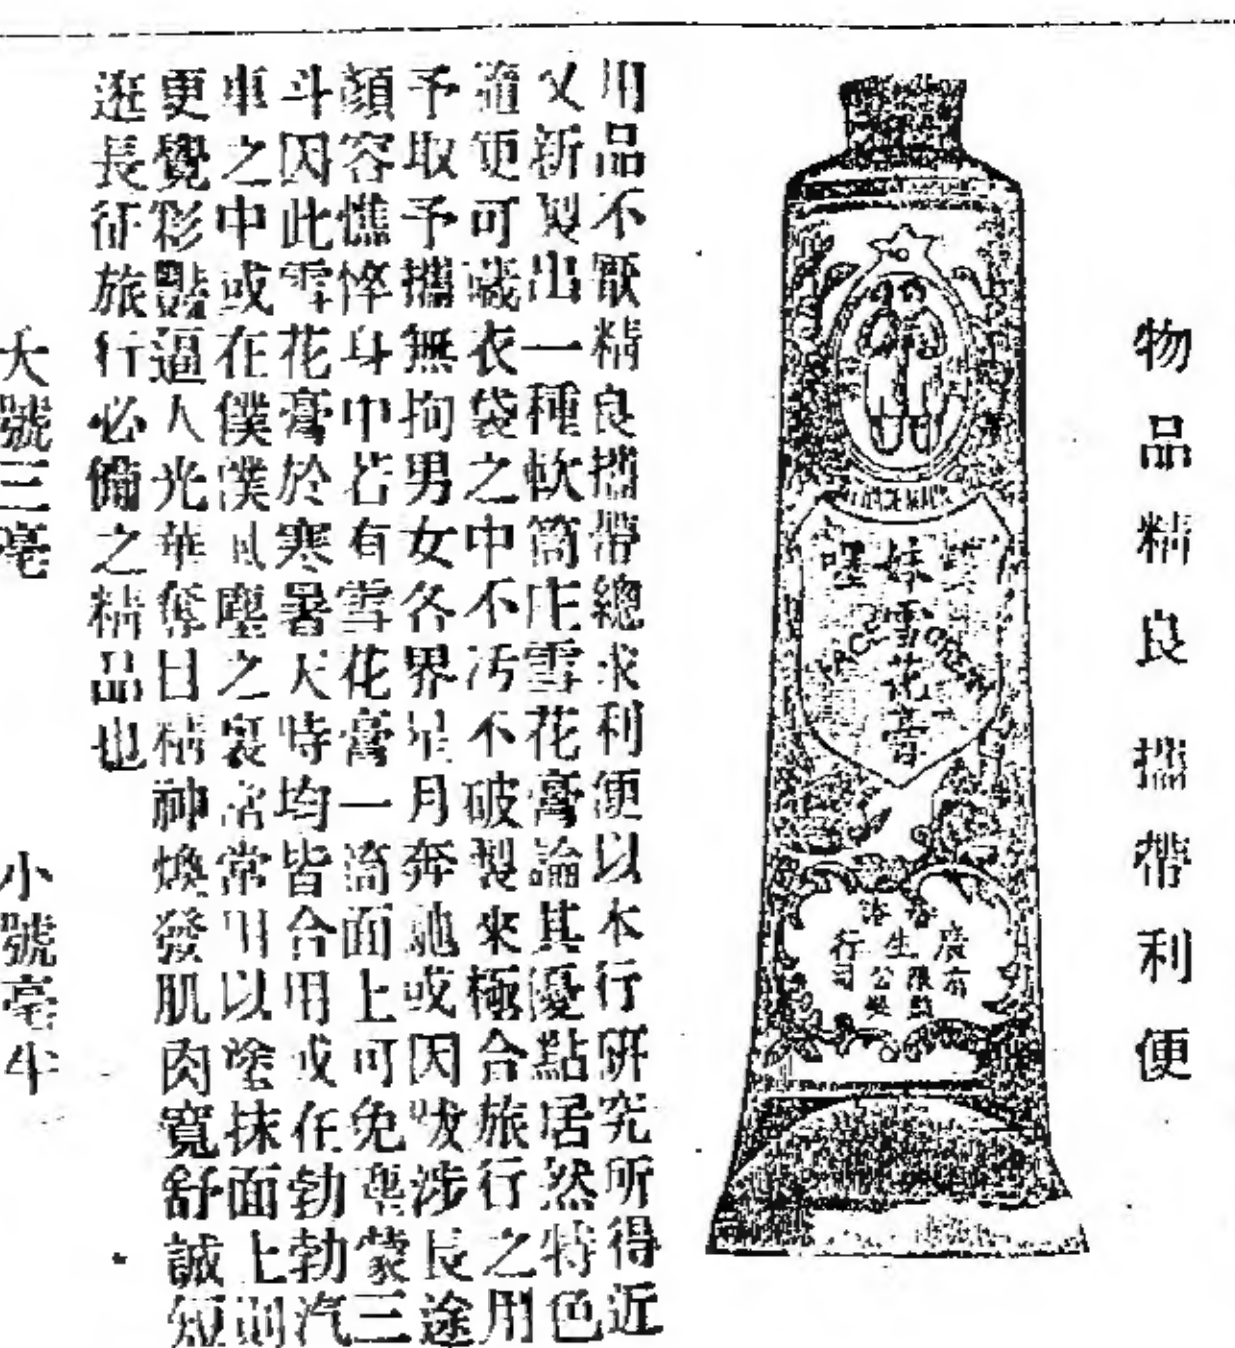 物品精良 攜帶利便
雪花膏
廣生行
有限公司
用品不厭精良攜帶總求利便以本行研究所得近
又新製出一種軟筒庄雪花膏論其優點居然特色
隨便可藏衣袋之中不污不破製來極合旅行之用
予取予攜無拘男女各界星月奔馳或因跋涉長途
顏容憔悴身中若有雪花膏一筒面上可免塵蒙三
斗因此雪花膏於寒暑天時均皆合用或在勃勃汽
車之中或在僕僕風塵之裏常用以塗抹面上則
更覺彩豔逼人光華奪日精神煥發肌肉寬舒誠短
逛長征旅行必備之精品也
大號三毫 小號毫半